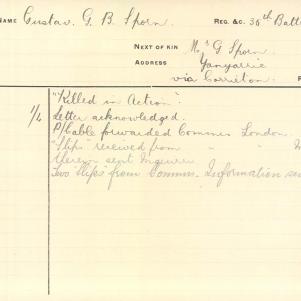 NAME Gustav. G. B. Sporn. REG. &C. 50th Batt
NEXT OF KIN Mr G Sporn.
ADDRESS Yanyarrie
via Carrieton.
"Killed in Action".
1/4 Letter acknowledged.
P/Cable forwarded Commrs London.
"Slip" received from " "
thereon sent Inquirer
Two "Slips" from Commrs. Information sen